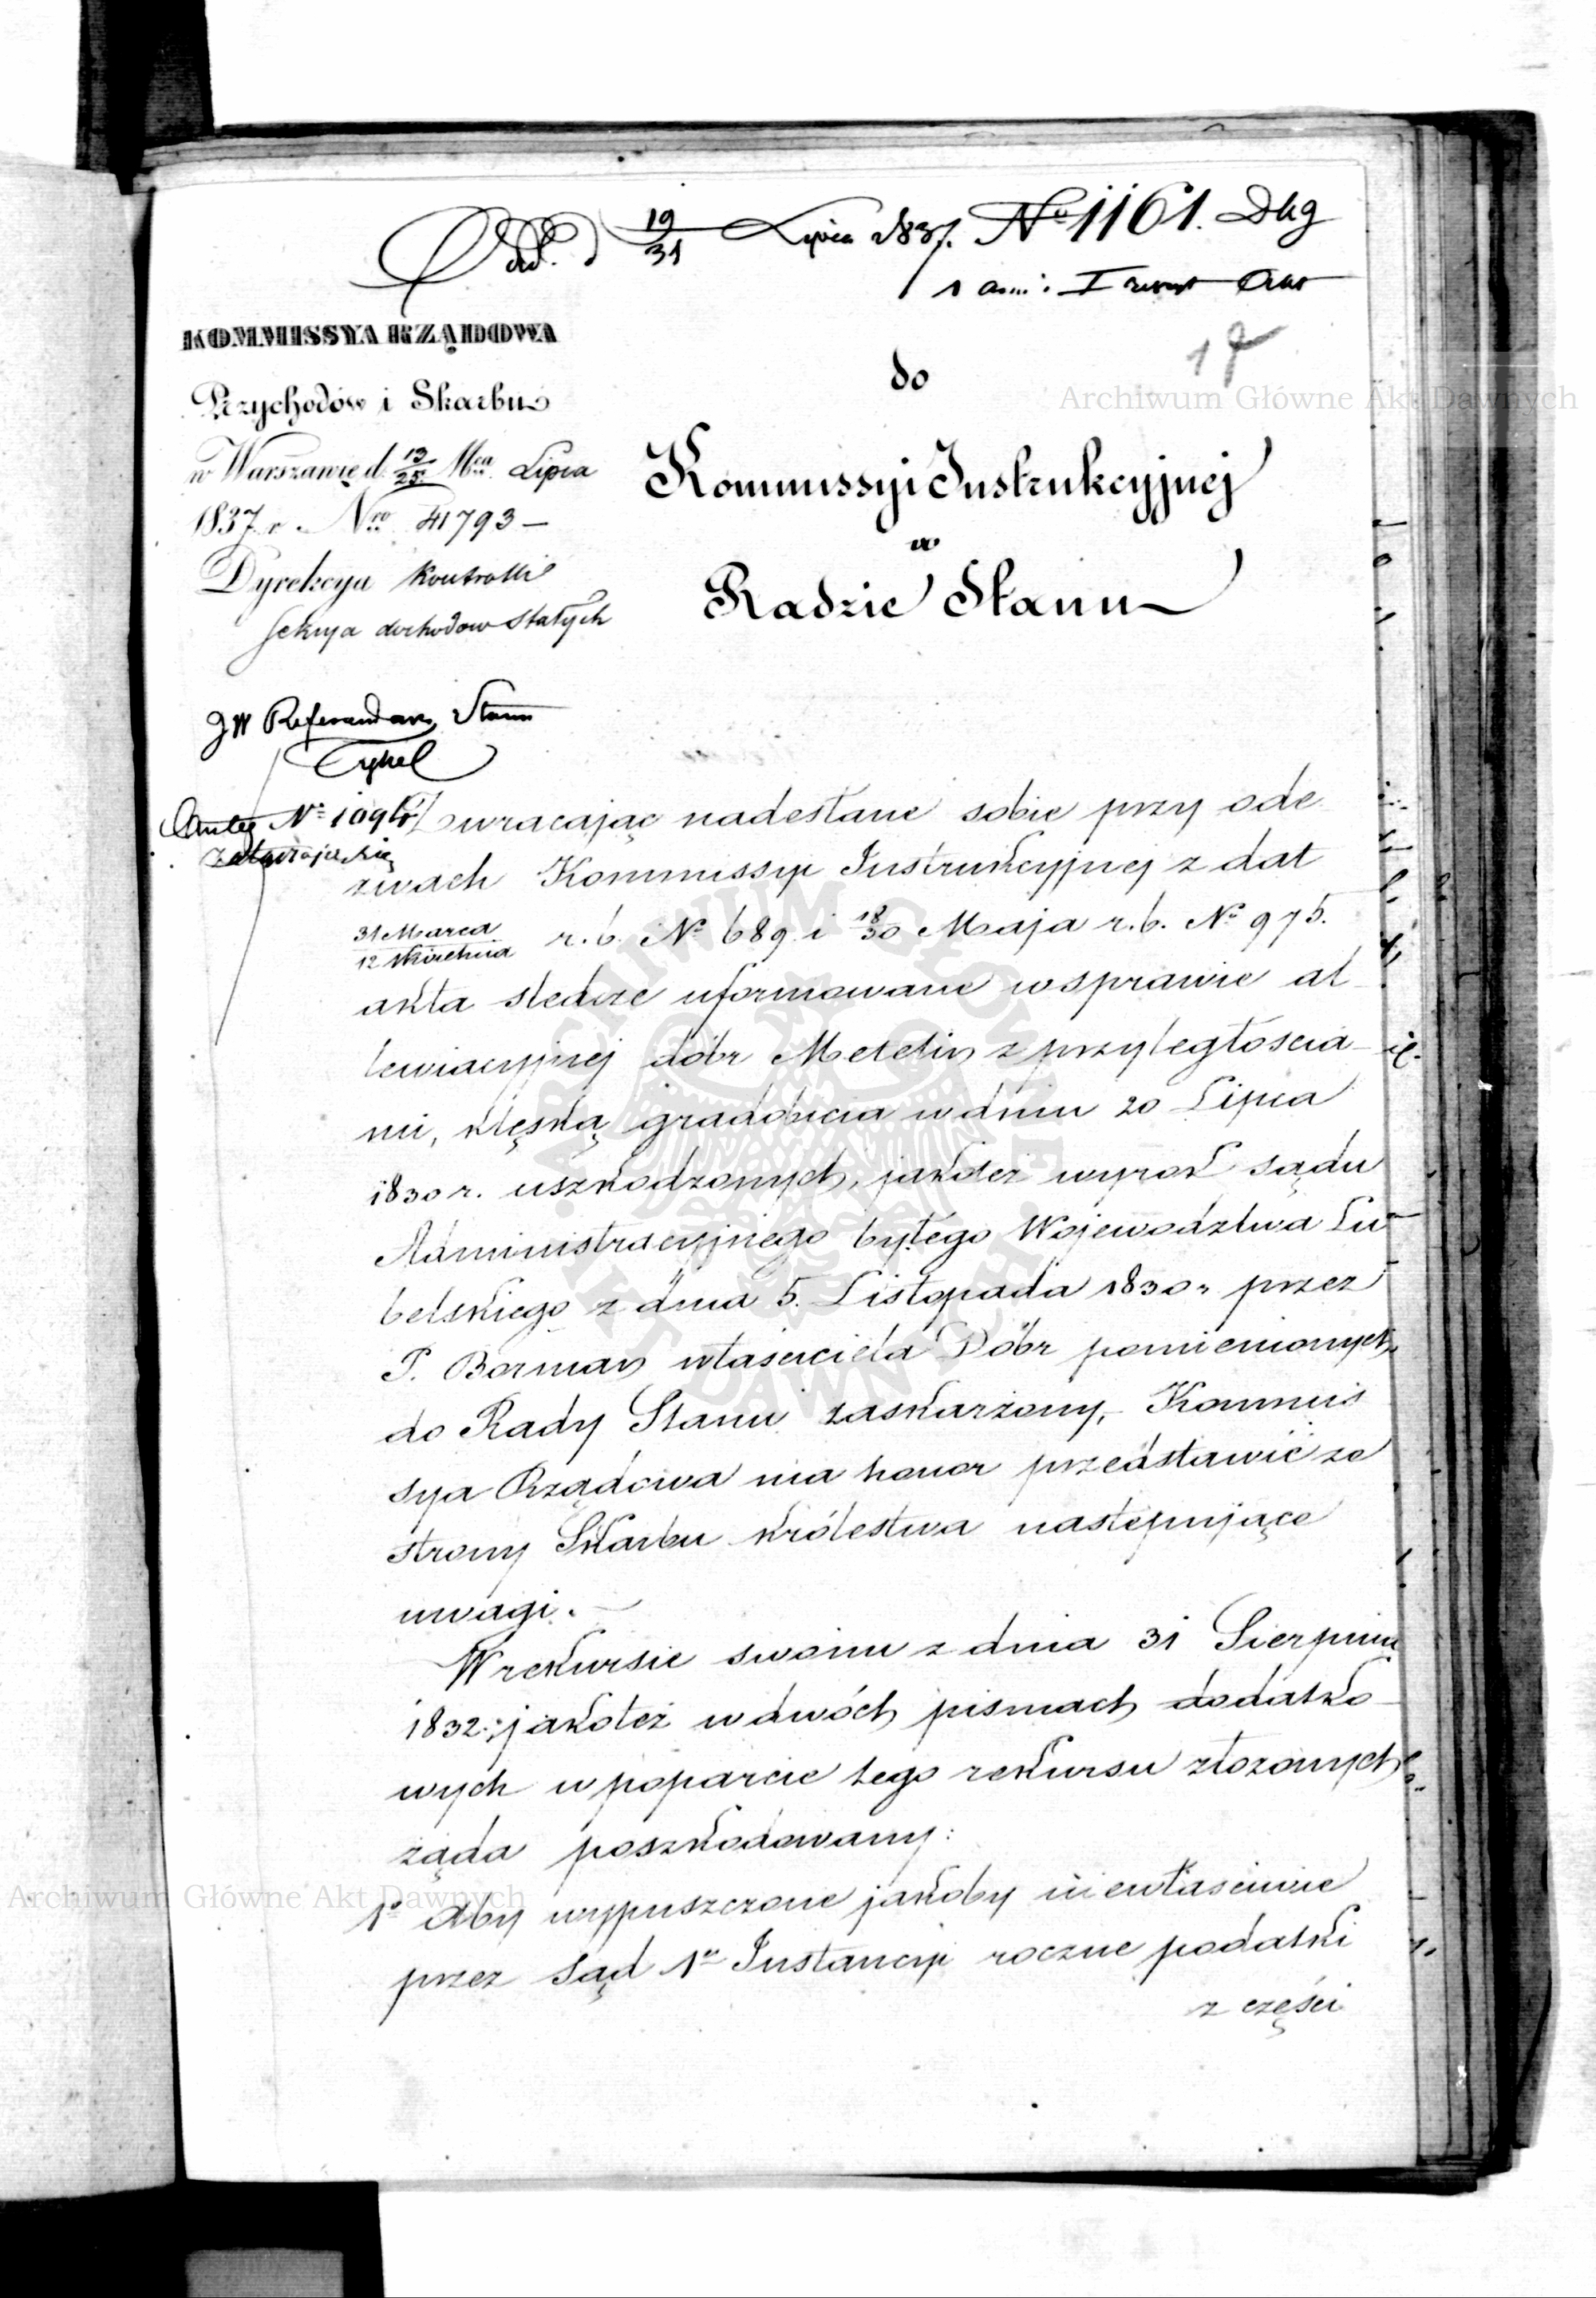 Odd. d 19/31 Lipca 1837. No 1161. Dhg
1 I Akt
17
KOMMISSYA RZĄDOWA
Przychodów i Skarbu
w Warszawie d. 13/25 Mca Lipca
1837 r. Nro 41793 –
Dyrekcya Kontrolli
Sekcya dochodow Stałych
do
Kommissyi Instrukcyjnej
w
Radzie Stanu
JW Referendarz Stanu
No 1096
załatwia się
Zwracając nadesłane sobie przy ode
zwach Kommissyi Instrukcyjnej z dat
31 Marca/12 Kwietnia r. b. No 689 i 18/30 Maja r. b. No 975.
akta sledcze uformowane w sprawie al
lewiacyjnej dóbr Metelin z przyległościa
mi, klęską gradobicia w dniu 20 Lipca
1830 r. uszkodzonych, jakoteż wyrok sądu
Administracyjnego byłego Wojewodztwa Lu
belskiego z dnia 5. Listopada 1830 r. przez
P. Borman właściciela Dóbr pomienionych,
do Rady Stanu zaskarżony, Kommis
sya Rządowa ma honor przedstawić ze
strony Skarbu królestwa następujące
uwagi. –
W rekursie swoim z dnia 31 Sierpnia
1832 r. jakoteż w dwóch pismach dodatko
wych w poparcie tego rekursu złożonych
żąda poszkodowany:
1o Aby wypuszczone jakoby niewłaściwie
przez Sąd 1ej Instancyi roczne podatki
z części
Archiwum Główne Akt Dawnych
Archiwum Główne Akt Dawnych
ARCHIWUM GŁÓWNE AKT DAWNYCH